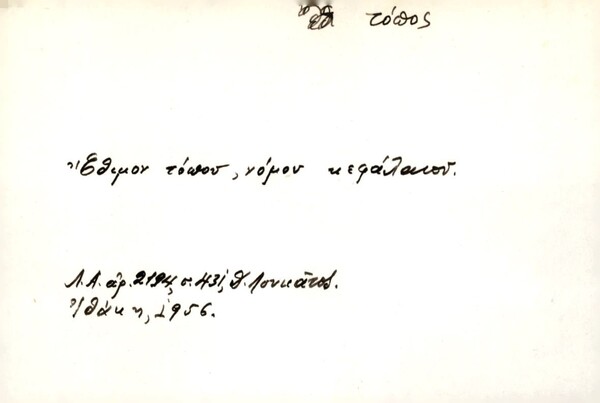 τόπος
Ἔθιμον τόπου, νόμου κεφάλαιον.
Λ.Α. ἀρ. 2194, σ. 431, Δ. Λουκᾶτος.
Ἰθάκη, 1956.